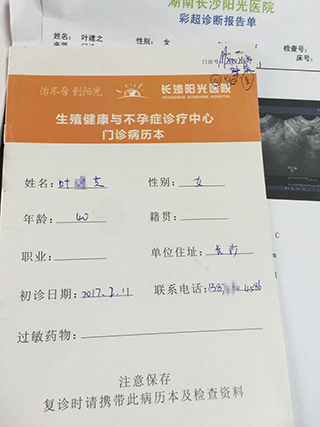 湖南长沙阳光医院
彩超诊断报告单
姓名：叶建之 性别：女 检查号：
床号：
门诊号
治不孕 到阳光 长沙阳光医院
CHANGSHA SUNSHINE HOSPITAL
生殖健康与不孕症诊疗中心
门诊病历本
姓名：叶 性别：女
年龄：40 籍贯：
职业： 单位住址：长沙
初诊日期：2017.2.11 联系电话：
过敏药物：
注意保存
复诊时请携带此病历本及检查资料